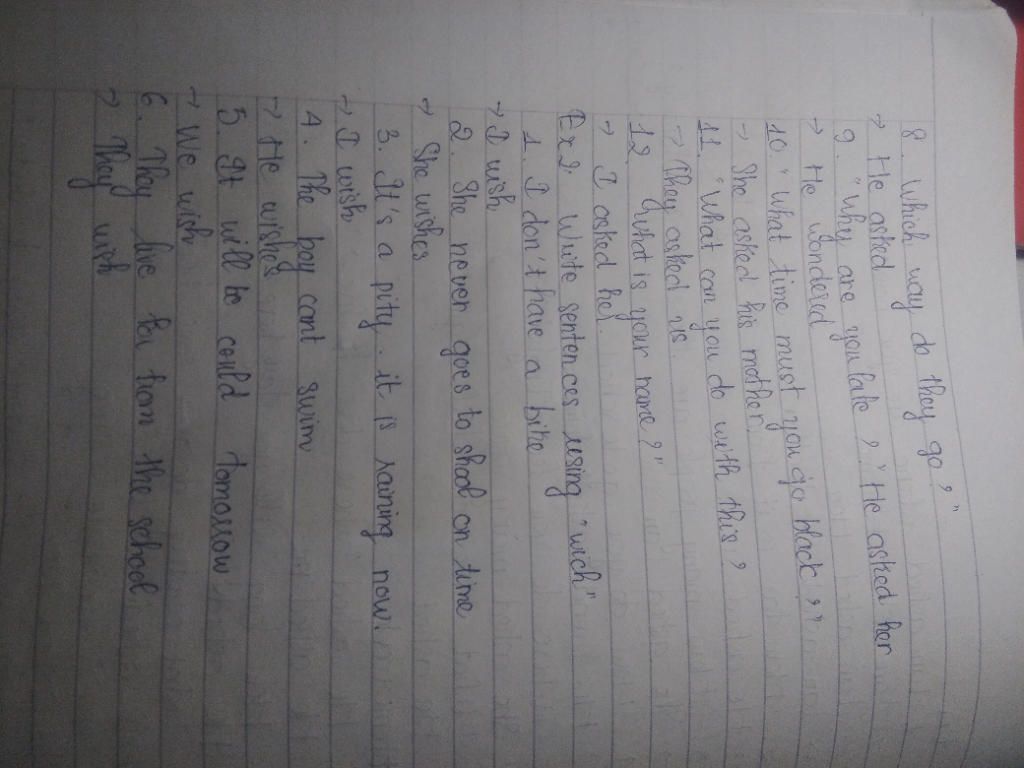 8. Which way do they go?"
→ He asked
9. "Why are you late?" He asked her
→ He wondered
10. "What time must you go black?"
→ She asked his mother
11. "What can you do with this?
→ They asked us
12. "What is your name?"
→ I asked her
Ex2: Write sentences using "wich"
1. I don't have a bike
→ I wish
2. She never goes to shool on time
→ She wishes
3. It's a pity. it is raining now.
→ I wish
4. The boy cant swim
→ He wishes
5. It will be could tomorrow
→ We wish
6. They live far from the school
→ They wish